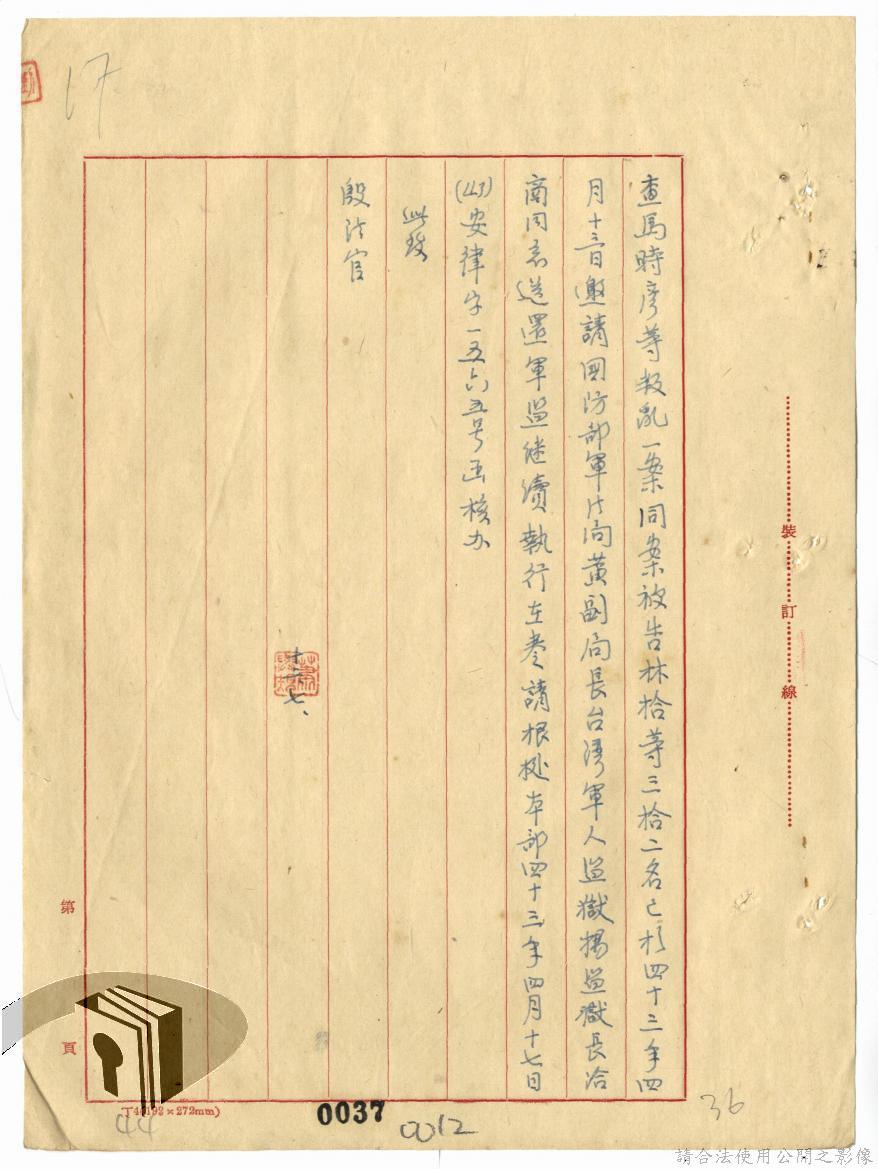 17
查馬時彥等叛亂一案同案被告林拾等三拾二名已於四十三年四
月十三日邀請國防部軍法局黃副局長台灣軍人監獄楊監獄長洽
商同意送還軍監继續執行在卷請根據本部四十三年四月十七日
(43)安律字一五六五号函核办
此致
殷法官
十六七、
裝訂線
第 頁
T4(192×272mm)
44
0037
0012
36
請合法使用公開之影像